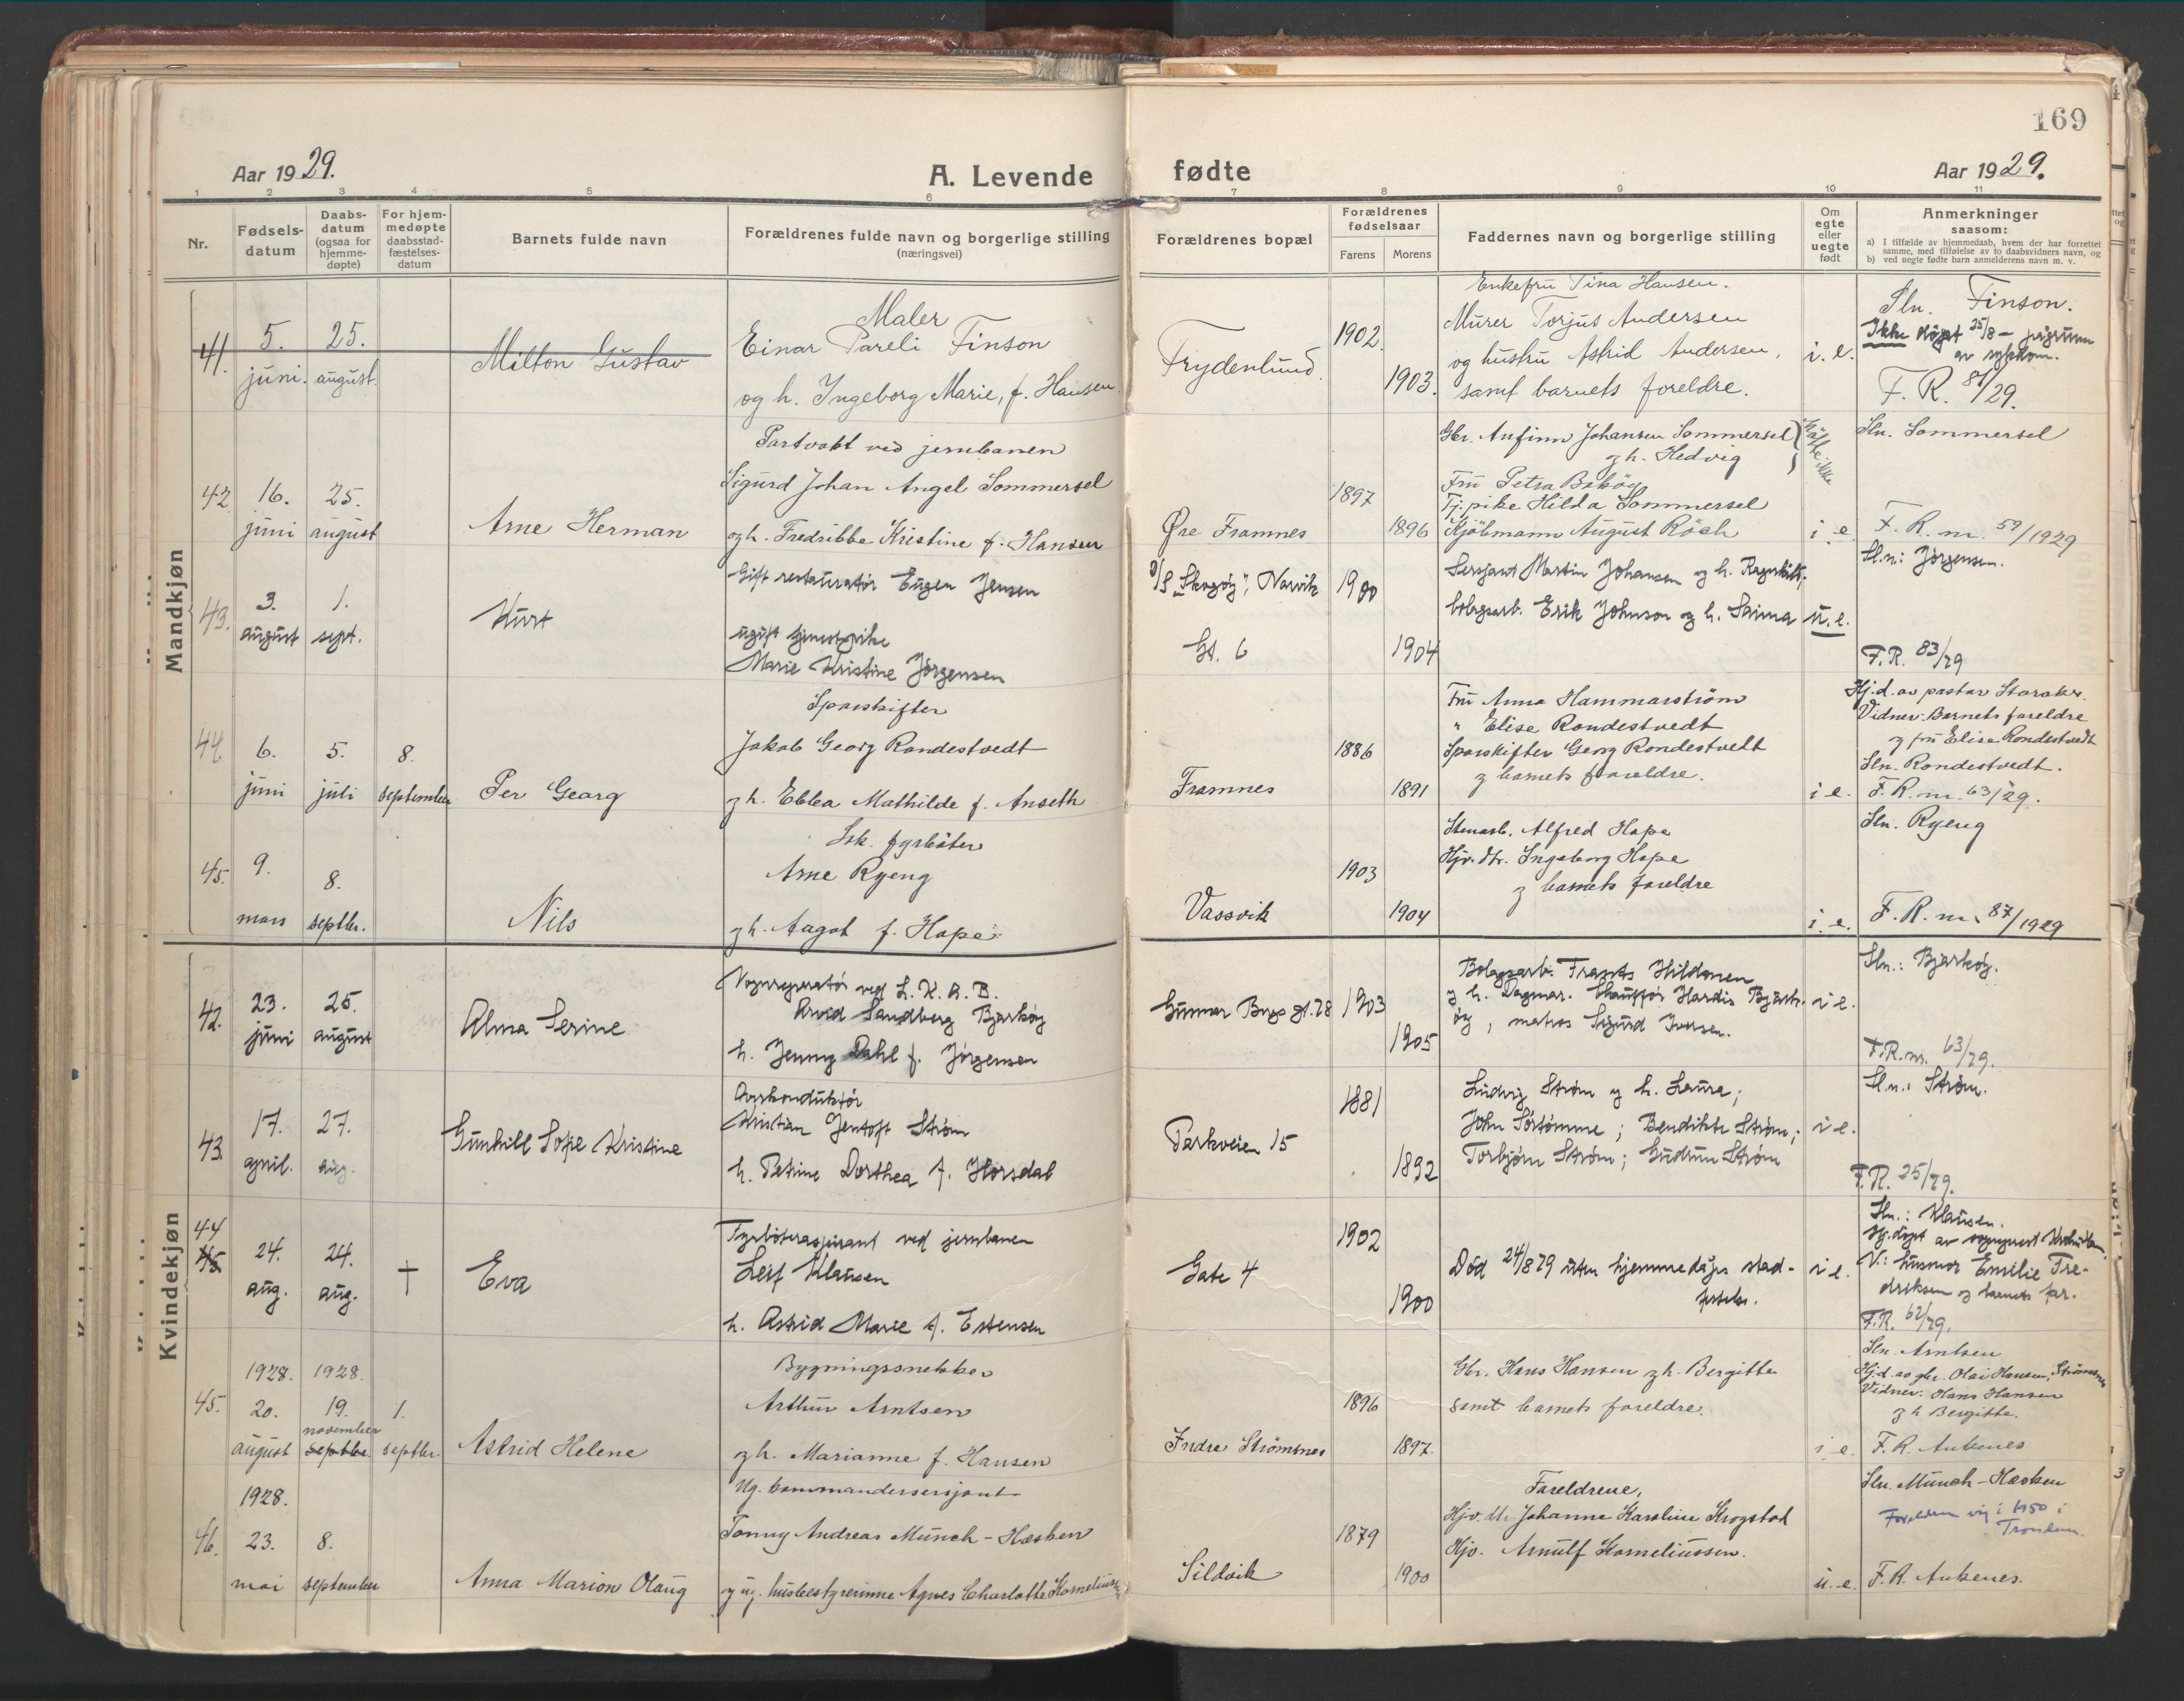 169
Aar 1929.
A. Levende fødte
Aar 1929.
1 2 3 4 5 6 7 8 9 10 11
Nr.
Fødsels-
datum
Daabs-
datum
(ogsaa for
hjemme-
døpte)
For hjem-
medøpte
daabsstad-
fæstelses-
datum
Barnets fulde navn
Forældrenes fulde navn og borgerlige stilling
(næringsvei)
Forældrenes bopæl
Forældrenes
fødselsaar
Farens Morens
Faddernes navn og borgerlige stilling
Om
egte
eller
uegte
født
Anmerkninger
saasom:
a) I tilfælde av hjemmedaab, hvem der har forrettet
samme, med tilføielse av to daabsvidners navn, og
b) ved uegte fødte barn anmelderens navn m. v.
Mandkjøn
41. 5. juni. 25. august.
Milton Gustav
Maler
Einar Pareli Finson
og h. Ingeborg Marie, f. Hansen.
Frydenlund.
1902.
1903.
Enkefru Tina Hansen.
Murer Torjus Andersen
og hustru Astrid Andersen,
samt barnets foreldre.
i. e.
Sln. Finson.
Ikke døpt 25/8 –
av sykdom.
F. R. 81/29.
42. 16. juni 25. august
Arne Herman
Portvakt ved jernbanen
Sigurd Johan Angel Sommersel
og h. Fredrikke Kristine f. Hansen
Øre Framnes
1897
1896
Gbr. Anfinn Johansen Sommersel
og h. Hedvig
Fru Petra
Tj.pike Hilda Sommersel
Kjøbmann August Rösh
i e.
Sln. Sommersel
F. R. nr. 59/1929
43. 3. august 1. sept.
Kurt
Gift restauratør Eugen Jensen
ugift tjenestpike
Marie Kristine Jørgensen
D/S "Skogøy", Narvik
Gt. 6
1900
1904
Sersjant Martin Johansen og h. Ragnhild;
bolagsarb. Erik Johnson og h. Saima
u. e.
Sln.: Jørgensen.
F.R. 83/29
44. 6. juni 5. juli 8. september
Per Georg
Sporskifter
Jakob Georg Rondestvedt
og h. Ebbea Mathilde f. Anseth
Framnes
1886
1891
Fru Anna Hammarström
" Elise Rondestvedt
Sporskifter Georg Rondestvedt
og barnets foreldre.
i e.
Hj.d. av pastor
Vidner: Barnets foreldre
og fru Elise Rondestvedt
Sln. Rondestvedt.
F. R. nr. 63/29.
45. 9. mars 8. septbr.
Nils
Lok. fyrbøter
Arne Ryeng
og h. Aagot f. Hope
Vassvik
1903
1904
Stenarb. Alfred Hope
Hjv. dtr. Ingeborg Hope
og barnets foreldre
i. e.
Sln. Ryeng
F. R. nr. 87/1929
Kvindekjøn
42. 23. juni 25. august
Alma Serine
Vognreparatør ved L. K. A. B.
Arvid Sandberg Bjarkøy
h. Jenny Dahl f. Jørgensen
Gunnar Bergs gt. 28
1903
1905
Bolagsarb. Frants Hildonen
og h. Dagmar. Chauffør Hardis Bjark-
øy, matros Sigurd Iversen.
i e.
Sln.: Bjarkøy.
F.R. nr. 63/29.
43. 17. april. 27. aug.
Gunhill Sofie Kristine
Overkonduktør
Kristian Jentoft Strøm
h. Petrine Dorthea f. Horsdal
Parkveien 15
1881
1892
Ludvig Strøm og h. Laura;
John Sørtømme; Bendikte Strøm;
Torbjørn Strøm; Gudrun Strøm
i e.
Sln.: Strøm.
F.R. 25/29.
44 45 24. aug. 24. aug. †
Eva
Fyrbøteraspirant ved jernbanen
Leif Klausen
h. Astrid Marie f. Estensen
Gate 4
1902
1900
Død 24/8 29 uten hjemmedåps stad-
festelse.
i e.
Sln.: Klausen.
Hj.døpt av sogneprest
V.: husmor Emilie Fre-
driksen og barnets far.
F.R. 62/29.
45. 1928. 20. august 1928. 19. november septbr. 1. septbr.
Astrid Helene
Bygningssnekker
Arthur Arntsen
og h. Marianne f. Hansen
Indre Strømsnes
1896
1897.
Gbr. Hans Hansen og h. Bergitte
samt barnets foreldre.
i e.
Sln. Arntsen
Hj.d. av gbr. Olai Hansen, Strømsnes
Vidner: Hans Hansen
og h Bergitte.
F. R. Ankenes
46. 1928. 23. mai 8. september
Anna Marion Olaug
Ug. kommandersersjant
Tonny Andreas Münch-Hæsken
og ug. husbestyrerinne Agnes Charlotte Korneliussen
Sildvik
1879
1900
Foreldrene,
Hjv. dtr. Johanne Karoline Krogstad
Hjv. Arnulf Korneliussen.
u. e.
Sln. Münch-Hæsken
Foreldre vig. i 1950 i
Trondem.
F. R. Ankenes.